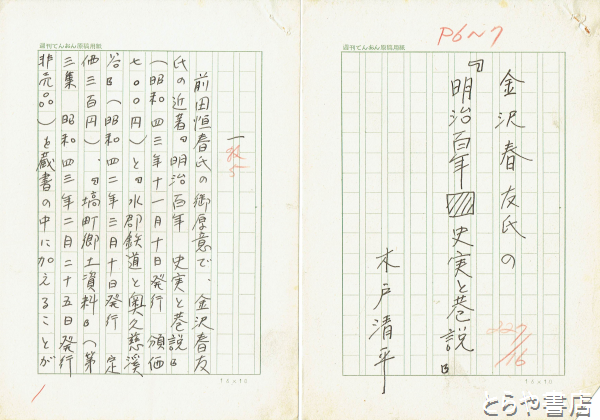 P6〜7
週刊てんおん原稿用紙
金沢春友氏の
『明治百年 史実と巷説』
木戸清平
227/16
15×10
週刊てんおん原稿用紙
一
5
前田恒春氏の御厚意で、金沢春友
氏の近著『明治百年 史実と巷説』
(昭和四三年十一月十日発行 頒価
七〇〇円)と『水郡鉄道と奥久慈渓
谷』(昭和四二年三月十日発行 定
価三百円)、『塙町郷土資料』(第
三集 昭和四三年二月二十五日発行
非売品)を蔵書の中に加えることが
1
15×10
とらや書店